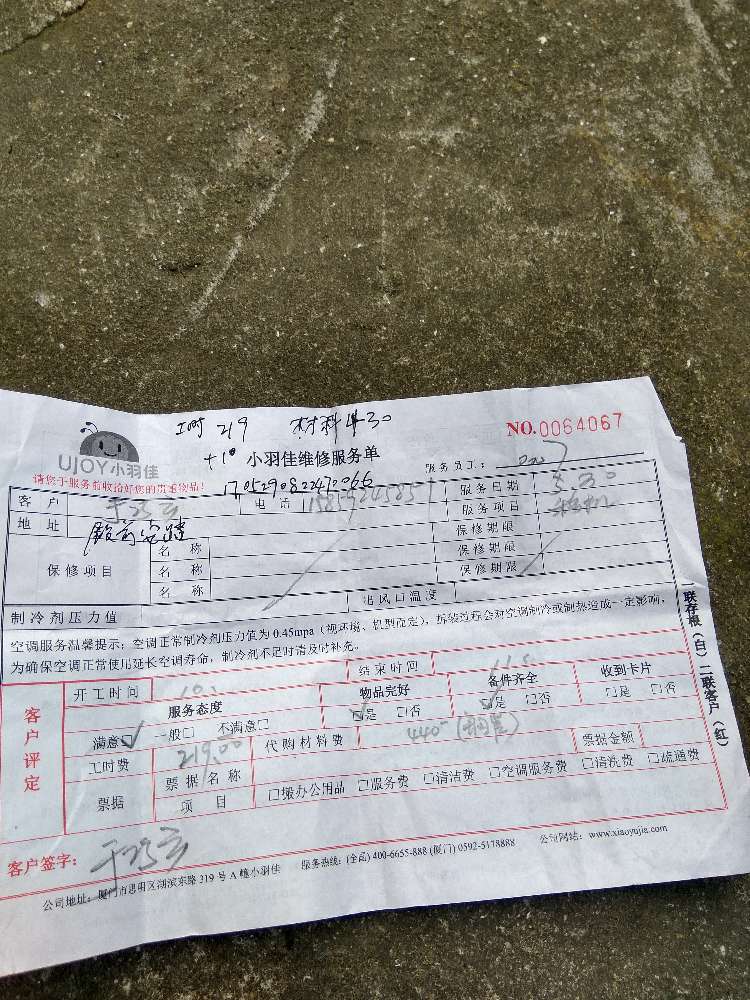 工时 219 材料430
NO.0064067
+10 小羽佳维修服务单
UJOY小羽佳
服务员工:
请您于服务前收拾好您的贵重物品!
1705290822470066
客户 电话 服务日期 5.30
地址 服务项目
保修项目 名称 保修期限
名称 保修期限
名称 保修期限
制冷剂压力值 出风口温度
空调服务温馨提示:空调正常制冷剂压力值为0.45mpa(视环境、机型而定),拆装过程会对空调制冷或制热造成一定影响,
为确保空调正常使用延长空调寿命,制冷剂不足时请及时补充。
客户评定
开工时间 10: 结束时间
服务态度 物品完好 备件齐全 收到卡片
满意☑ 一般□ 不满意□ ☑是 □否 ☑是 □否 □是 □否
工时费 219.00 代购材料费 440-
票据 票据名称 票据金额
项目 □办公用品 □服务费 □清洁费 □空调服务费 □清洗费 □疏通费
客户签字:
公司地址:厦门市思明区湖滨东路319号A幢小羽佳 服务热线:(全国)400-6655-888(厦门)0592-5178888 公司网站:www.xiaoyujia.com
一联存根(白)二联客户(红)